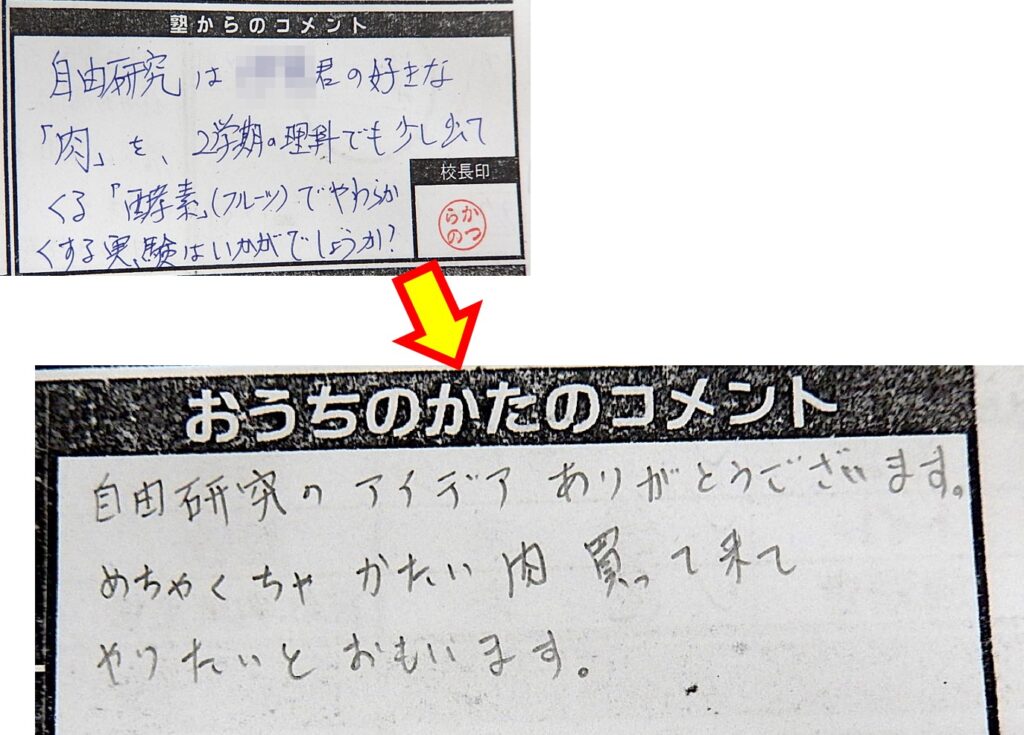 塾からのコメント
自由研究は 君の好きな
「肉」を、2学期の理科でも少し出て
くる「酵素」(フルーツ)でやわらか
くする実験はいかがでしょうか?
校長印
らか
のつ
おうちのかたのコメント
自由研究のアイデアありがとうございます。
めちゃくちゃかたい肉買って来て
やりたいとおもいます。